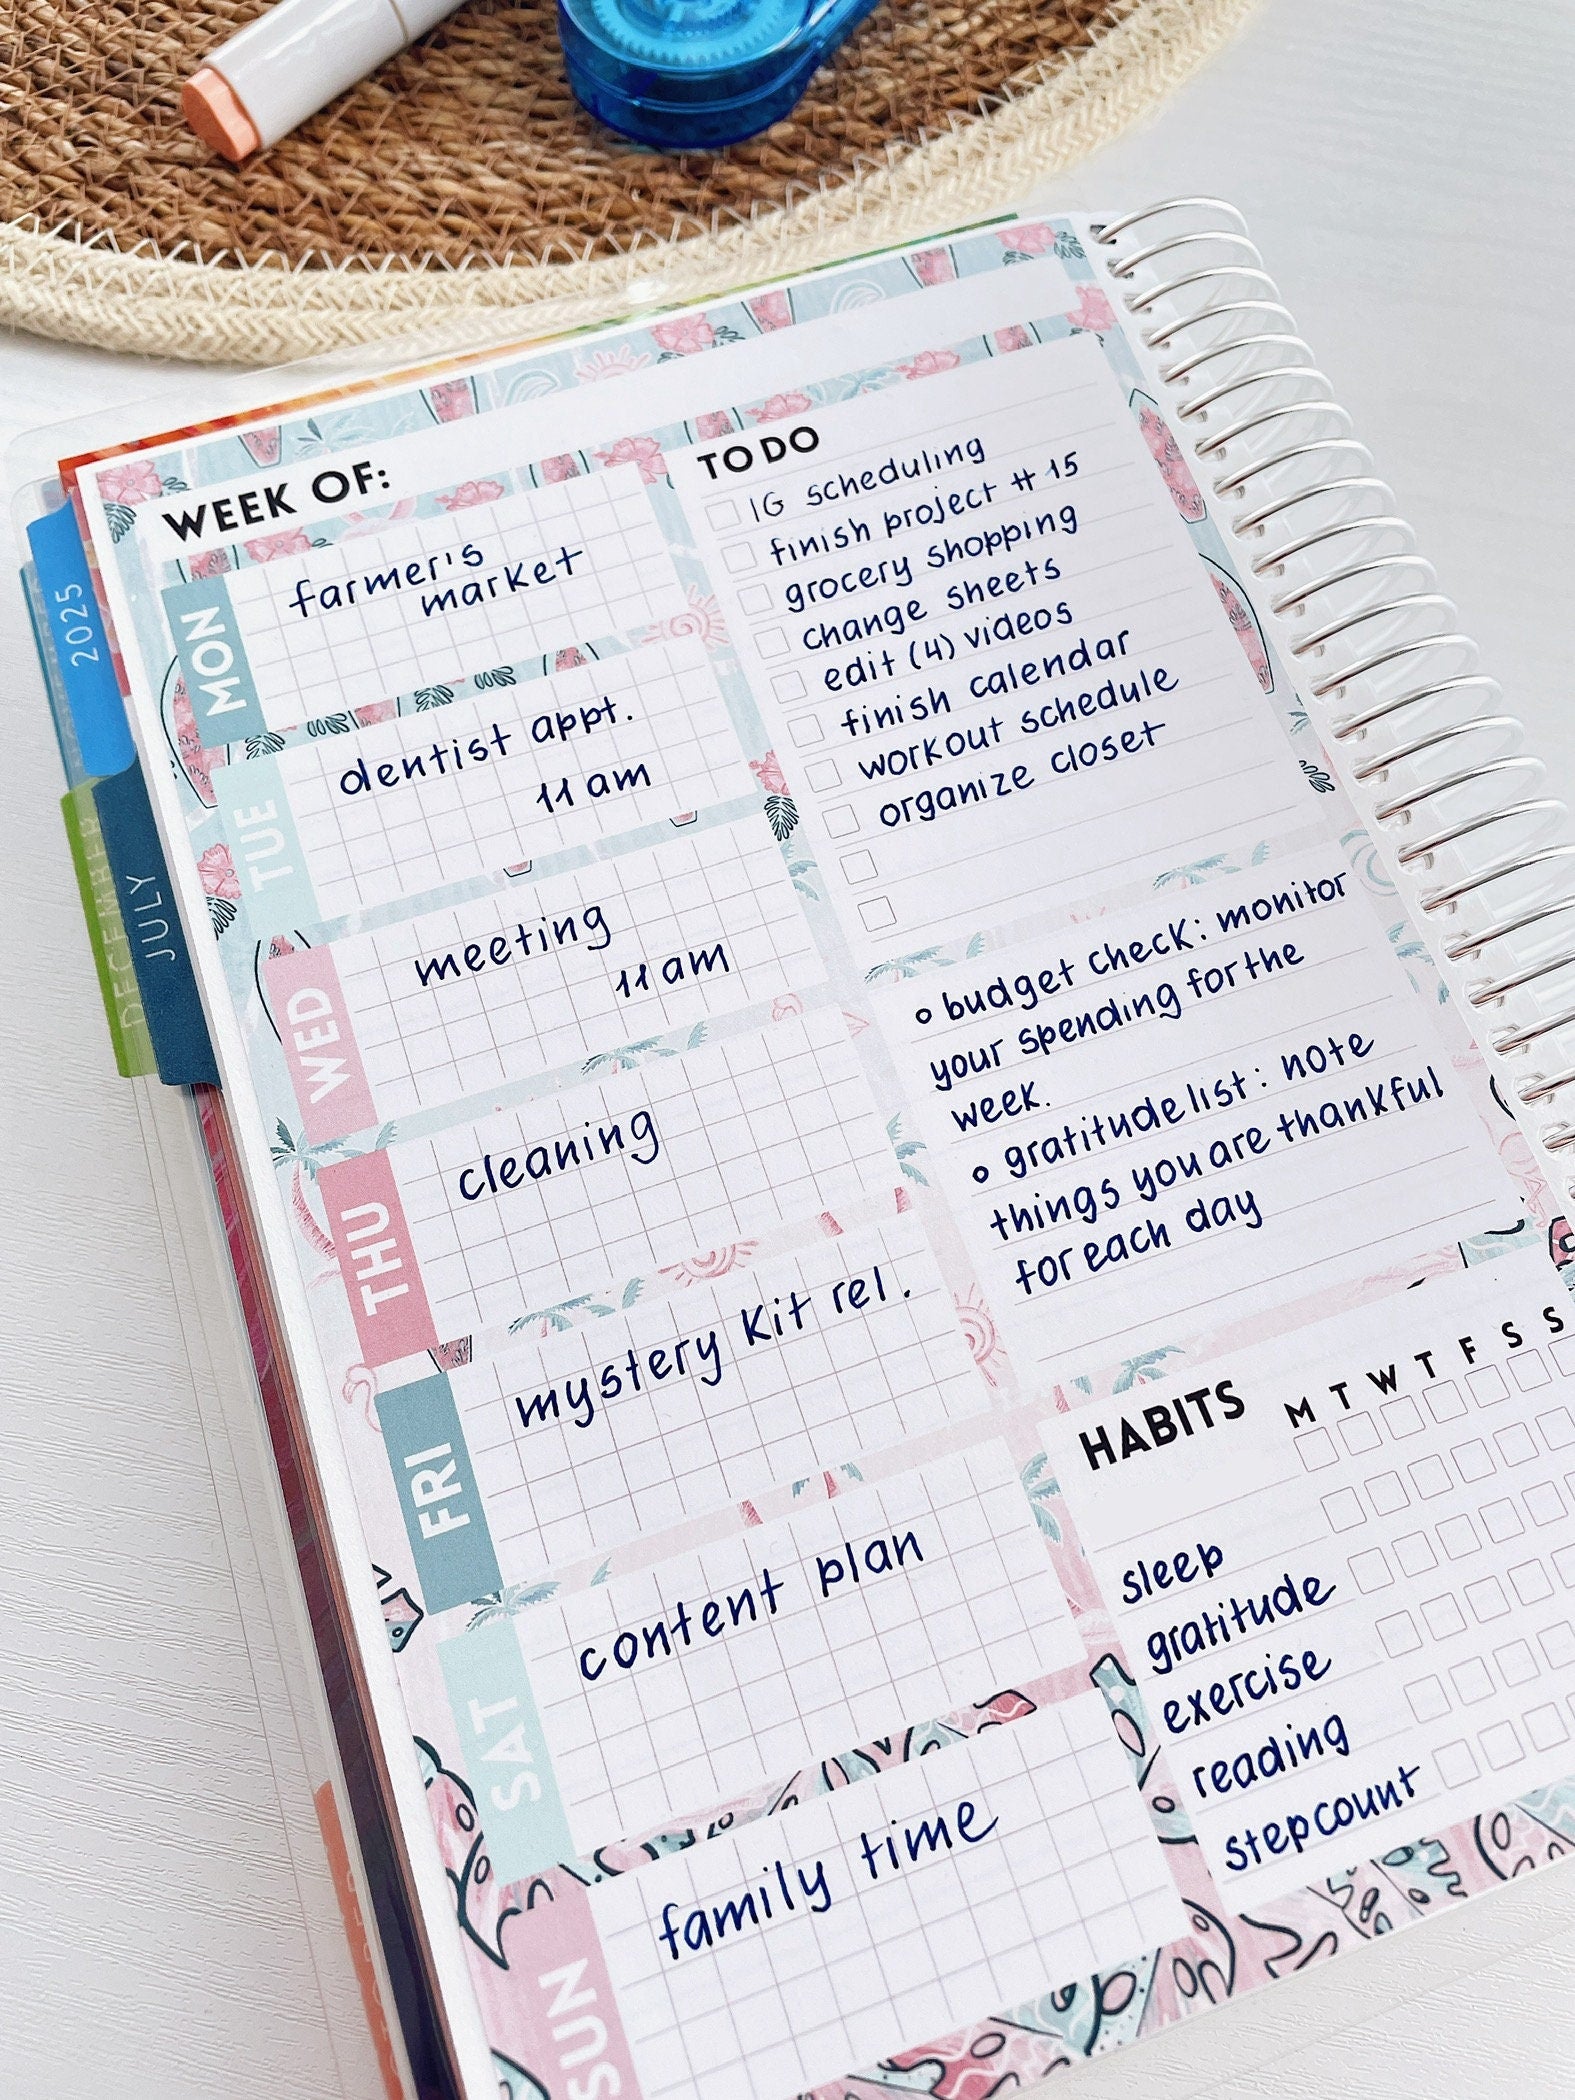 2025
DECEMBER
JULY
WEEK OF:
MON
farmer's
market
TUE
dentist appt.
11 am
WED
meeting
11 am
THU
cleaning
FRI
mystery kit rel.
SAT
content plan
SUN
family time
TO DO
IG scheduling
finish project # 15
grocery shopping
change sheets
edit (4) videos
finish calendar
workout schedule
organize closet
o budget check: monitor
your spending for the
week.
o gratitude list: note
things you are thankful
for each day
HABITS M T W T F S S
sleep
gratitude
exercise
reading
step count